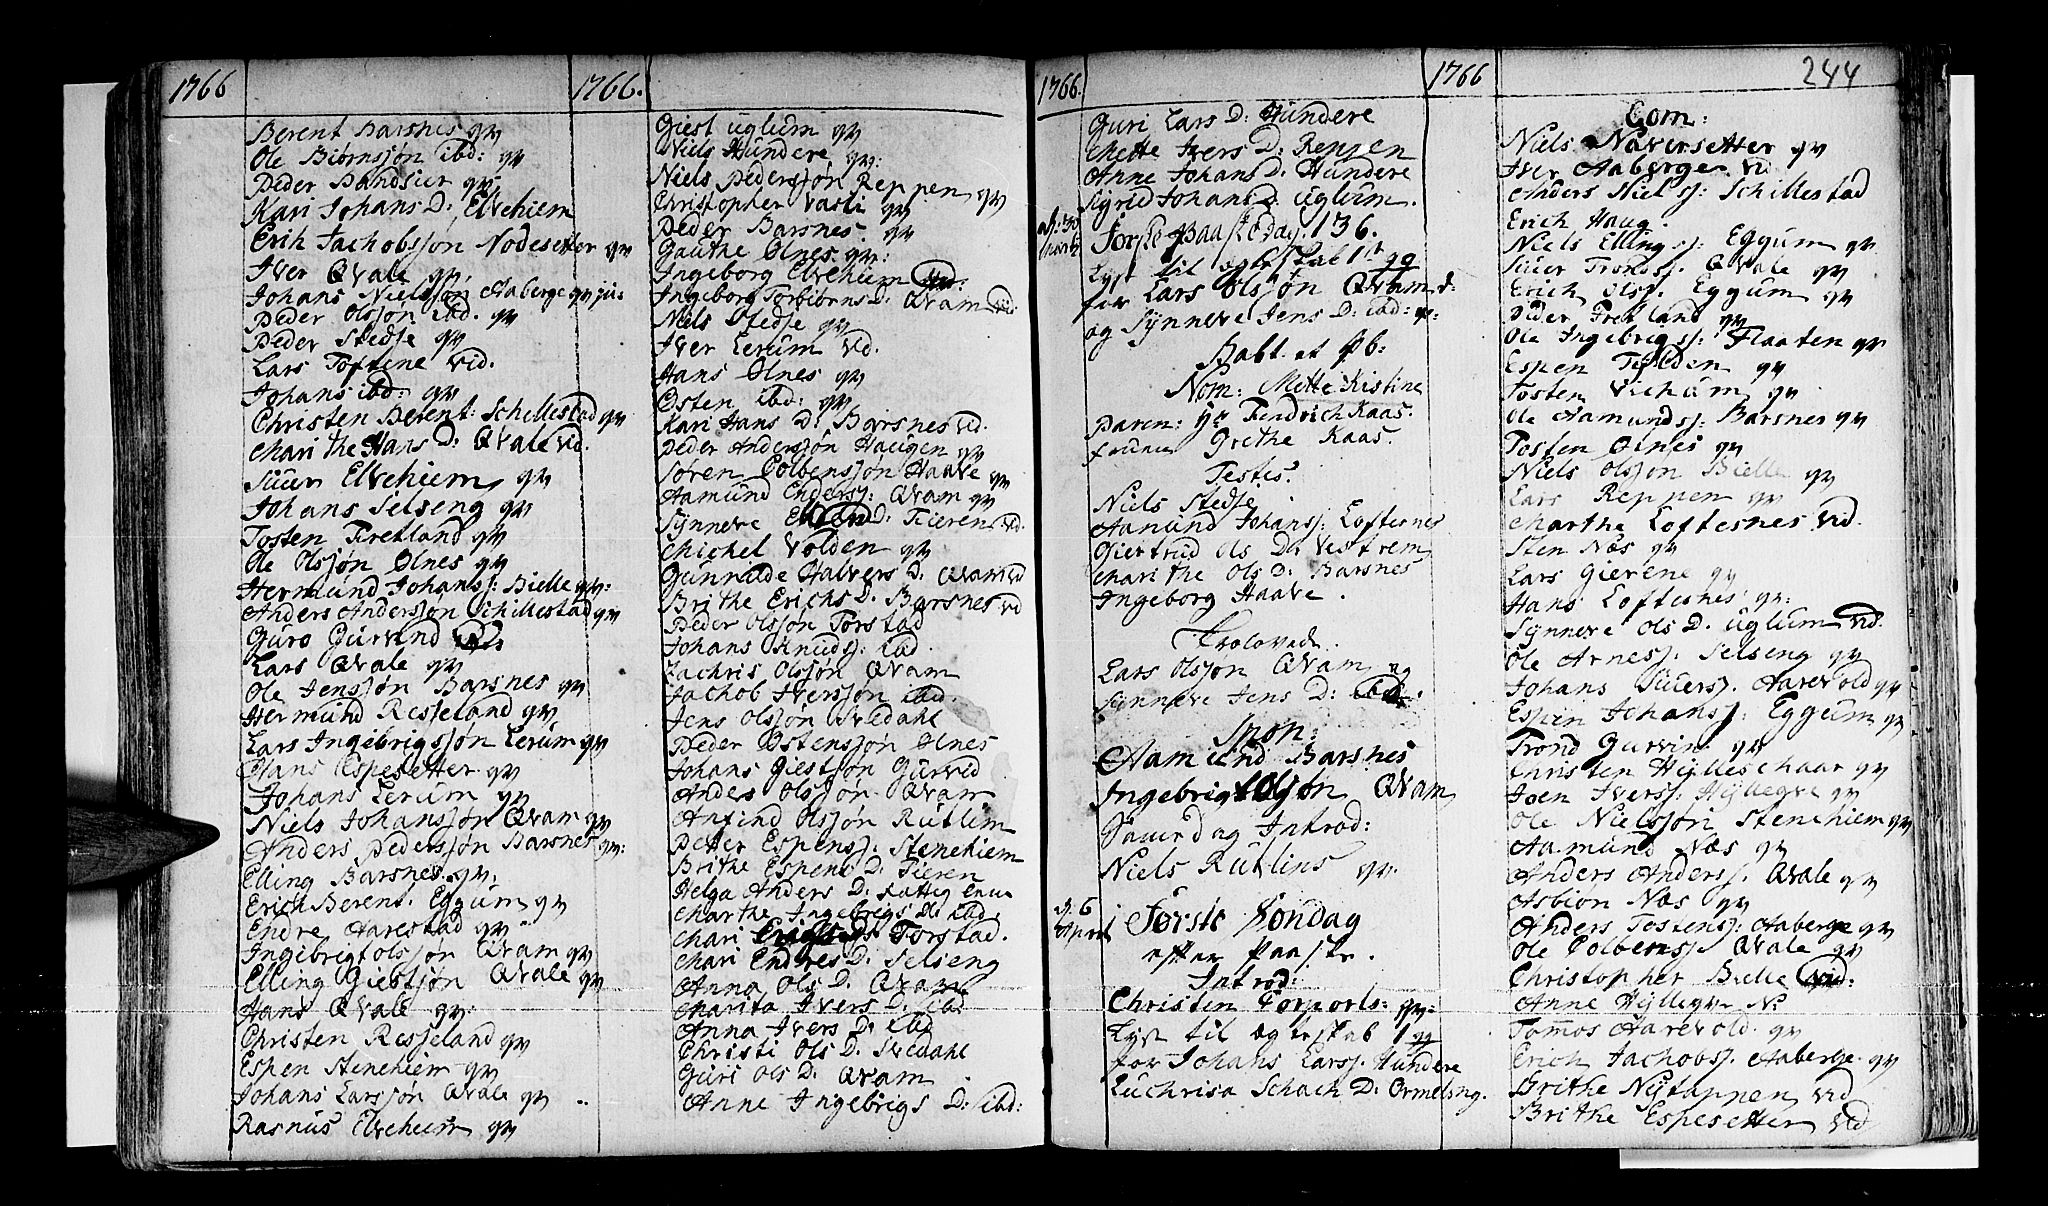 1766
Berent Barsnes qv
Ole Biørnsjøn ibd: qv
Peder Sandsier qv
Kari Johans D: Elvehiem
Erik Jachobssøn Nodesetter qv
Iver Qvale qv
Johans Nielssøn Aaberge qv
Peder Olsjøn ibd. qv
Peder Stedje qv
Lars Toftene vid.
Johans ibd: qv
Christen Berent: Schillestad qv
Marithe Hans D: Qvale vid.
Siuur Elvehiem qv
Johans Selseng qv
Tosten Fretland qv
Ole Olsjøn Ølnes qv
Hermund Johansj: Bielle qv:
Anders Andersjøn Schillestad qv
Guro Gurvind
Lars Qvale qv
Ole Jensjøn Barsnes qv
Hermund Resseland qv
Lars Ingebrigsjøn Lerum qv
Hans Espesetter qv
Johans Lerum qv
Niels Johansjøn Qvam qv
Anders Pedersjøn Barsnes qv:
Elling Barsnes qv:
Erich Berent. Eggum qv
Endre Aarestad qv
Ingebrigt olsjøn Qvam qv
Elling Giestsjøn Qvale qv
Hans Qvale qv:
Christen Resseland qv
Espen Stenehiem qv
Johans Larsjøn Qvale qv
Rasmus Elvehiem qv
1766.
Giest uglum qv
Niels Hundere qv:
Niels Pedersjøn Reppen qv
Christopher Vasti qv
Peder Barsnes. qv
Gauthe Ølnes qv:
Ingeborg Elvehiem
Ingeborg Torbiørns D: Qvam vid
Niels Stedje qv
Iver Lerum vid.
Hans Ølnes qv
Østen ibd: qv
Kari Hans D: Barsnes vid.
Peder Andersjøn Haugen qv
Søren Colbensjøn Haave qv
Aamund Endersj: Qvam qv
Synneve D: Fieren vid.
Michel Volden qv
Gunnilde Halvers D: Qvam vid
Brithe Erichs D: Barsnes vid
Peder Olsjøn Torstad
Johans Knudsj: ibd.
Zachris Olsjøn Qvam
Jachob Iversjøn ibd.
Jens Olsjøn Svedahl
Peder Østensjøn Ølnes
Johans Giestsjøn Gurvid
Anders Olsjøn Qvam
Anfind Olsjøn Rutlin
Petter Espensj: Stenehiem
Brithe Espens D: Fieren
Helga Anders D:
Marthe Ingebrigs D: ibd.
Mari D: Torstad.
Mari Endres D: Selseng
Anna Ols D: Qvam
Marita Ivers D: ibd:
Anna Ivers D: ibd
Christi Ols D: Svedahl
Guri Ols D: Qvam
Anne Ingebrigs D: ibd:
1766.
Guri Lars D: Hundere
Mette Ivers D: Reppen
Anne Johans D: Hundere
Sigrid Johans D: uglum.
d: 30 Martz
Første Paaskedag. 136.
Lyst til egteskab 1st gg
for Lars Olsjøn Qvam
og Synneve Jens D: ibd: qv:
Babt. et Øb:
Nom: Mette Kistine
Paren: Hr Fendrich Kaas.
fruen Grethe Kaas.
Testis.
Niels Stedje
Aamund Johansj: Loftesnes
Giertrud Ols D: Vestrem
Marithe Ols D: Barsnes
Ingeborg Haave.
Trolovede.
Lars Olsjøn Qvam og
Synneve Jens D: ibd:
Spon:
Aamund Barsnes
Ingebrigt Olsjøn Qvam
Samedag Introd:
Niels Rutlins qv.
d. 6 April
Første Søndag
efter Paaske.
Introd:
Christen Corporls: qv:
Lyst til egteskab 1 gg
for Johans Larsj: Hundere
Luchrisa Schach D: Ormelsng.
1766
244
Com:
Niels Naversetter qv
Iver Aaberge vid
Anders Nielsj: Schillestad
Erich Haug.
Niels Ellingsj: Eggum qv
Siuer Trondsj. Qvale qv
Erich Olsj. Eggum qv
Peder Fretland qv
Ole Ingebrigsj: Flaaten qv
Espen Tylden qv
Tosten Vichum qv
Ole Aamundsj: Barsnes qv
Tosten Ølnes qv
Niels Olsjøn Bielle qv
Lars Reppen qv
Marthe Loftesnes vid.
Sten Næs qv
Lars Gierene qv
Hans Loftesnes qv:
Synneve Ols D. uglum vid.
Ole Arnesj: Selseng qv
Johans Siuersj. Aarevold qv
Espen Johansj: Eggum qv
Trond Gurvin qv
Christen Hylleschaar qv
Joen Iversj: Hyllegve qv
Ole Nielssjøn Stenehiem qv
Aamund Næs qv
Anders Andersj. Qvale qv
Asbiøn Næs qv
Anders Tostensj: Aaberge qv
Ole Colbensj: Qvale qv
Christopher Bielle
Anne Hyllegve
Tomos Aarevold. qv
Erich Jachobsj. Aaberge qv
Brithe Nytappen vid
Brithe Espesetter vid